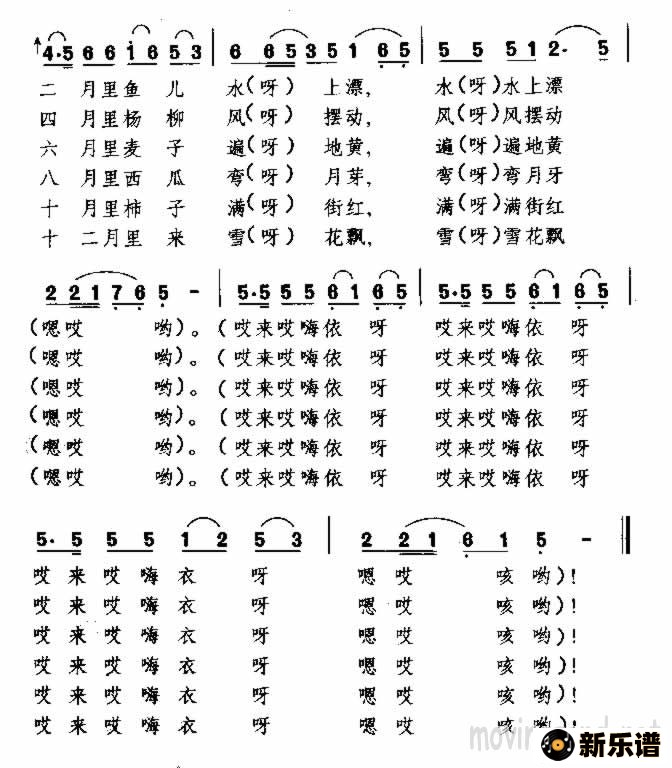 4·5 66 i6 53 | 6 653 51 65 | 5 5 51 2· 5
二月里鱼儿 水(呀)上漂, 水(呀)水上漂
四月里杨柳 风(呀)摆动, 风(呀)风摆动
六月里麦子 遍(呀)地黄, 遍(呀)遍地黄
八月里西瓜 弯(呀)月芽, 弯(呀)弯月牙
十月里柿子 满(呀)街红, 满(呀)满街红
十二月里来 雪(呀)花飘, 雪(呀)雪花飘
2 21 76 5 - | 5·5 55 61 65 | 5·5 55 61 65 |
(嗯哎 哟)。(哎来哎嗨依 呀 哎来哎嗨依 呀
(嗯哎 哟)。(哎来哎嗨依 呀 哎来哎嗨依 呀
(嗯哎 哟)。(哎来哎嗨依 呀 哎来哎嗨依 呀
(嗯哎 哟)。(哎来哎嗨依 呀 哎来哎嗨依 呀
(嗯哎 哟)。(哎来哎嗨依 呀 哎来哎嗨依 呀
(嗯哎 哟)。(哎来哎嗨依 呀 哎来哎嗨依 呀
5· 5 5 5 1 2 5 3 | 2 21 6 1 5 - ‖
哎来哎嗨衣 呀 嗯哎 咳哟)!
哎来哎嗨衣 呀 嗯哎 咳哟)!
哎来哎嗨衣 呀 嗯哎 咳哟)!
哎来哎嗨衣 呀 嗯哎 咳哟)!
哎来哎嗨衣 呀 嗯哎 咳哟)!
哎来哎嗨衣 呀 嗯哎 咳哟)!
新乐谱